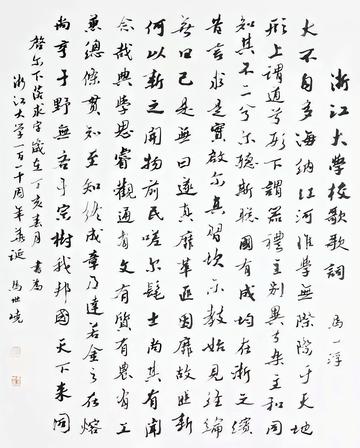 浙江大學校歌歌詞 馬一浮
大不自多海納江河惟學無際際于天地
形上謂道兮形下謂器禮主別異兮樂主和同
知其不二兮尔聽斯聰國有成均在浙之濱
昔言求是實啟尔真習坎示教始見經綸
無曰已是無曰遂真靡革匪因靡故匪新
何以新之開物前民嗟尔髦士尚其有聞
念哉典學思睿觀通有文有質有農有工
兼總條貫知至知終成章乃達若金之在熔
尚亨于野無吝于宗樹我邦國天下來同
啓尔下落求字 歲在丁亥春月 書為
浙江大学一百一十周年華誕 馬世曉